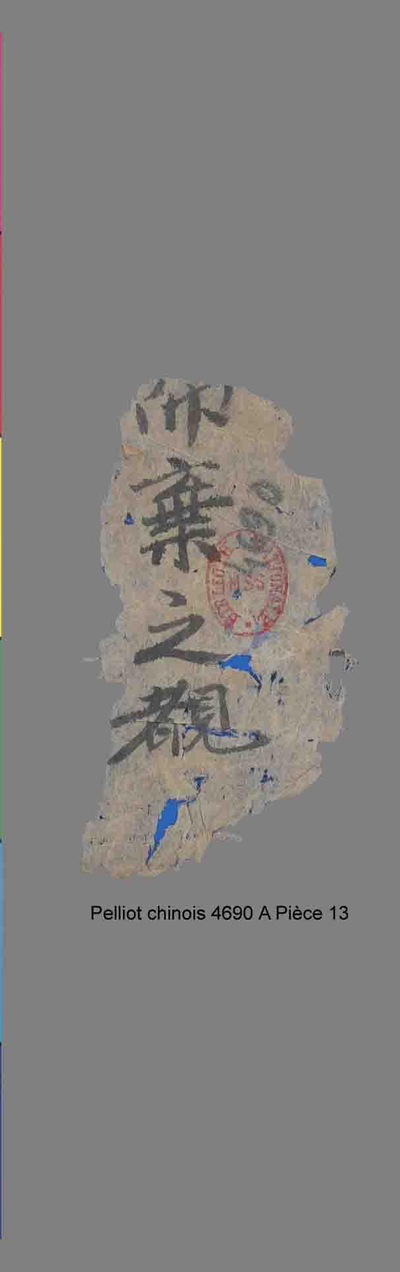 棄之覩
4690
Pelliot chinois 4690 A Pièce 13